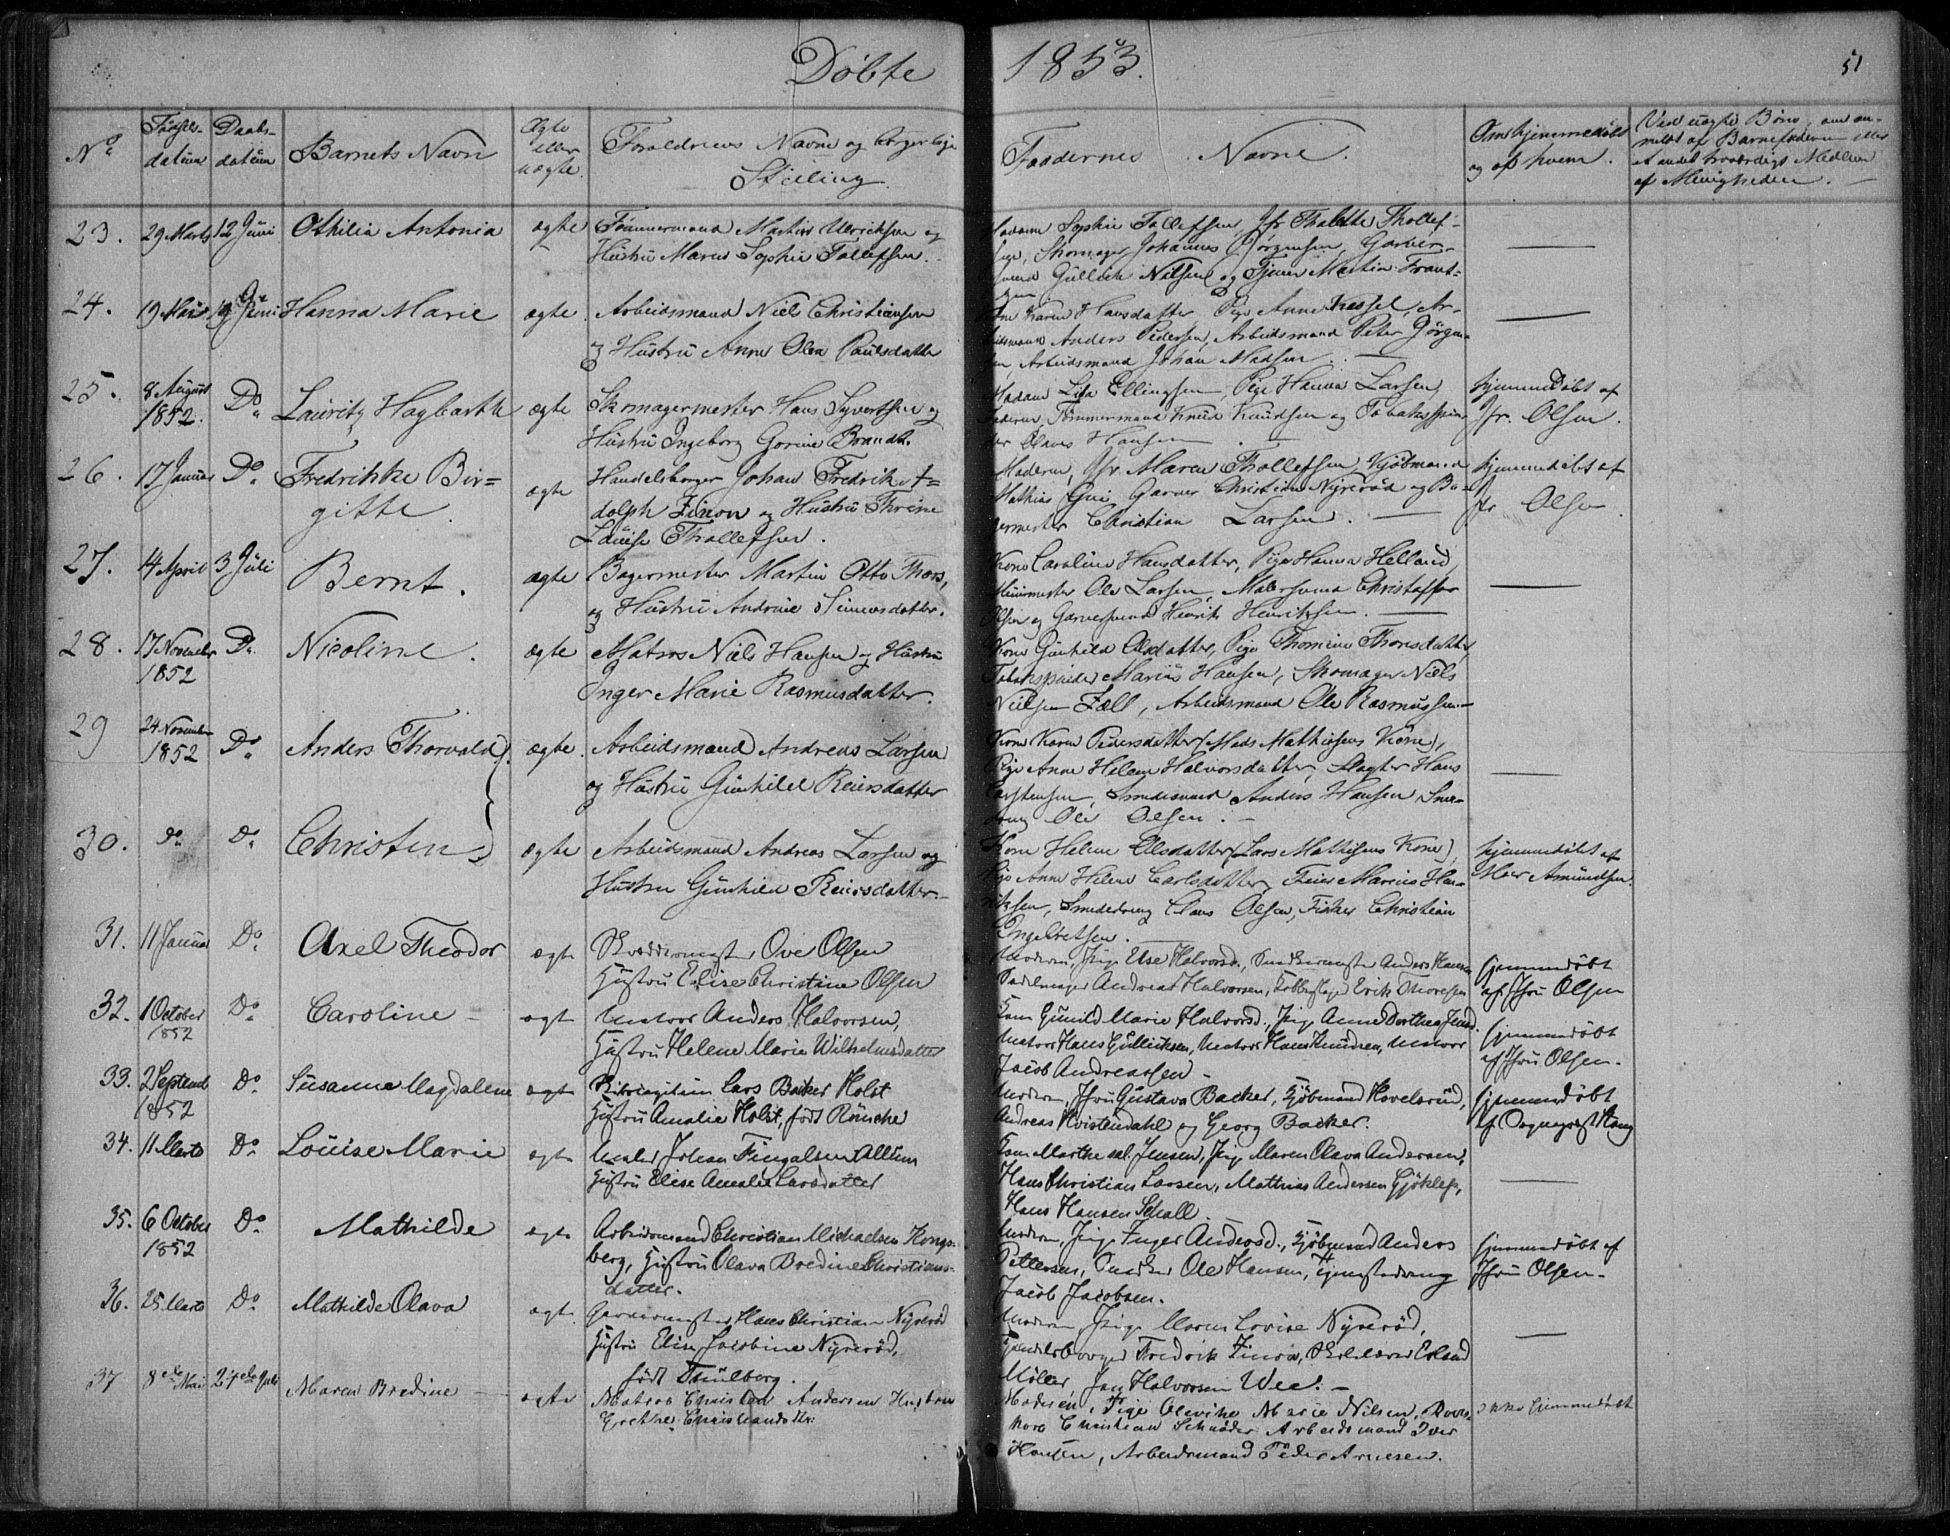 Döbte 1853. 51
No. Fødsels-datum Daabs-datum Barnets Navn Ægte eller uægte. Forældrenes Navne og borgerlige Stilling. Faddernes Navne. Om hjemmedöbt og af hvem. Ved uægte Börn, om anmeldt af Barnefaderen eller et andet troværdigt Medlem af Menigheden.
23. 29 Marts 12 Juni Othilia Antonia ægte Tömmermand Martins Ulricksen og
Hustru Maren Sophie Tollefsen.
Madam Sophie Tollefsen, Jfr Thalette Thollef-
sen, Skomager Johannes Jörgensen, Garver-
svend Gullick Nilsen og Tjener Martin Frant-
zen
24. 19 Mai 19 Juni Hanna Marie ægte. Arbeidsmand Niels Christiansen
og Hustru Anne Olea Paulsdatter
Kone Karen Hansdatter, Pige Anne Kassel, Ar-
beidsmand Anders Pedersen, Arbeidsmand Peter Jörgen-
sen, Arbeidsmand Johan Madsen.
25. 8 August 1852. Do Lauritz Hagbarth ægte Skomagermester Hans Syvertsen og
Hustru Ingeborg Gorine Brandt.
Madam Lisa Ellingsen, Pige Hanna Larsen,
Faderen, Tömmermand Knud Knudsen og Tobaksspin-
der Claus Hansen
hjemmedöbt af
Jfr. Olsen.
26. 17 Januar Do. Fredrikke Bir-
gitte. ægte Handelsborger Johan Fredrik A-
dolph Zinow og Hustru Thrine
Louise Thollefsen.
Moderen, Jfr. Maren Thollefsen, Kjöbmand
Mathias Gui, Garver Christian Nyreröd og Ba-
germester Christian Larsen.
hjemmedöbt af
Jfr Olsen.
27. 14 April 3 Juli Bernt. ægte Bagermester Martin Otto Thors,
og Hustru Andrine Simensdatter.
Kone Caroline Hansdatter, Pige Hanna Helland,
Muurmester Ole Larsen, Malersvend Christoffer
Olsen og Garversvend Henrik Henriksen.
28. 17 November 1852 Do. Nicoline. ægte Matros Niels Hansen og Hustru
Inger Marie Rasmusdatter.
Kone Gunhild Olsdatter, Pige Thomine Thorsdatter,
Tobakspinder Marius Hansen, Skomager Niels
Nielsen Fæll, Arbeidsmand Ole Rasmussen.
29 24 November 1852 Do. Anders Thorvald ægte. Arbeidsmand Andreas Larsen
og Hustru Gunhild Reiersdatter
Kone Karen Pedersdatter (Mads Mathisens Kone),
Pige Anne Helene Halvorsdatter, Slagter Hans
Carstensen, Smedesvend Anders Hansen, Sme-
dreng Ole Olsen.
30. do Do. Christen ægte Arbeidsmand Andreas Larsen og
Hustru Gunhild Reiersdatter.
Kone Helene Olsdatter (Lars Mathisens Kone),
Pige Anne Helene Carlsdatter, Feier Marius Hen-
riksen, Smededreng Claus Olsen, Fisker Christian
Engebretsen.
hjemmedöbt af
Moer Amundsen.
31. 11 Januar Do. Axel Theodor ægte Skræddermester Ove Olsen
Hustru Elise Christine Olsen
Moderen, Pige Else Halvorsd., Snedkermester Anders Hansen
Sadelmager Andreas Halvorsen, Kobberslager Erik Thoresen
hjemmedöbt
af Jfru Olsen
32. 1 October 1852 Do. Caroline ægte Matros Anders Halvorsen,
Hustru Helene Maria Wilhelmsdatter
Kone Gunild Marie Halvorsd., Pige Anne Dorthea Jensd.
Matros Hans Gulliksen, Matros Hans Knudsen, Matros
Jacob Andreassen
hjemmedöbt
af Jfru Olsen.
33. 2 Septemb 1852 Do. Susanne Magdalene ægte Skibscapitain Lars Backer Holst
Hustru Amalia Holst, født Röncke
Moderen, Jfru Gustava Backer, Kjöbmand Hovelsrud,
Andreas Kvistendahl og Georg Backer.
hjemmedöbt
af Sognepræst Stang
34. 11 Marts Do. Louise Marie ægte Maler Johan Fingalsen Allum
Hustru Elise Amalia Larsdatter
Kone Marthe sal. Jensen, Pige Maren Olava Andersen,
Hans Christian Larsen, Mathias Andersen Gjöklep,
Hans Hansen Schall.
35. 6 October 1852 Do. Mathilde ægte Arbeidsmand Christian Michaelsen Kongs-
berg, Hustru Olava Bredine Christians-
datter.
Moderen, Pige Inger Andersd., Kjöbmand Anders
Pettersen, Snedker Ole Hansen, Tjenestedreng
Jacob Jacobsen.
hjemmedöbt af
Jfru Olsen.
36. 25 Marts Do. Mathilde Olava ægte. Garvermester Hans Christian Nyreröd
Hustru Elise Jacobine Nyreröd,
født Thülberg.
Moderen, Pige Maren Lovise Nyreröd,
Handelsborger Fredrik Zinow, Skolelærer Erland
Möller, Jens Halvorsen Wee.
37 8de Mai 24de Juli Maren Bredine ægte Matros Christen Andersen Hustru
Grethe Christiansdtr.
Moderen, Pige Olevine Marie Nilsen,
Christian Schröder Arbeidsmand Iver
Hansen, Arbeidsmand Peder Arnesen.
ikke hjemmedöbt